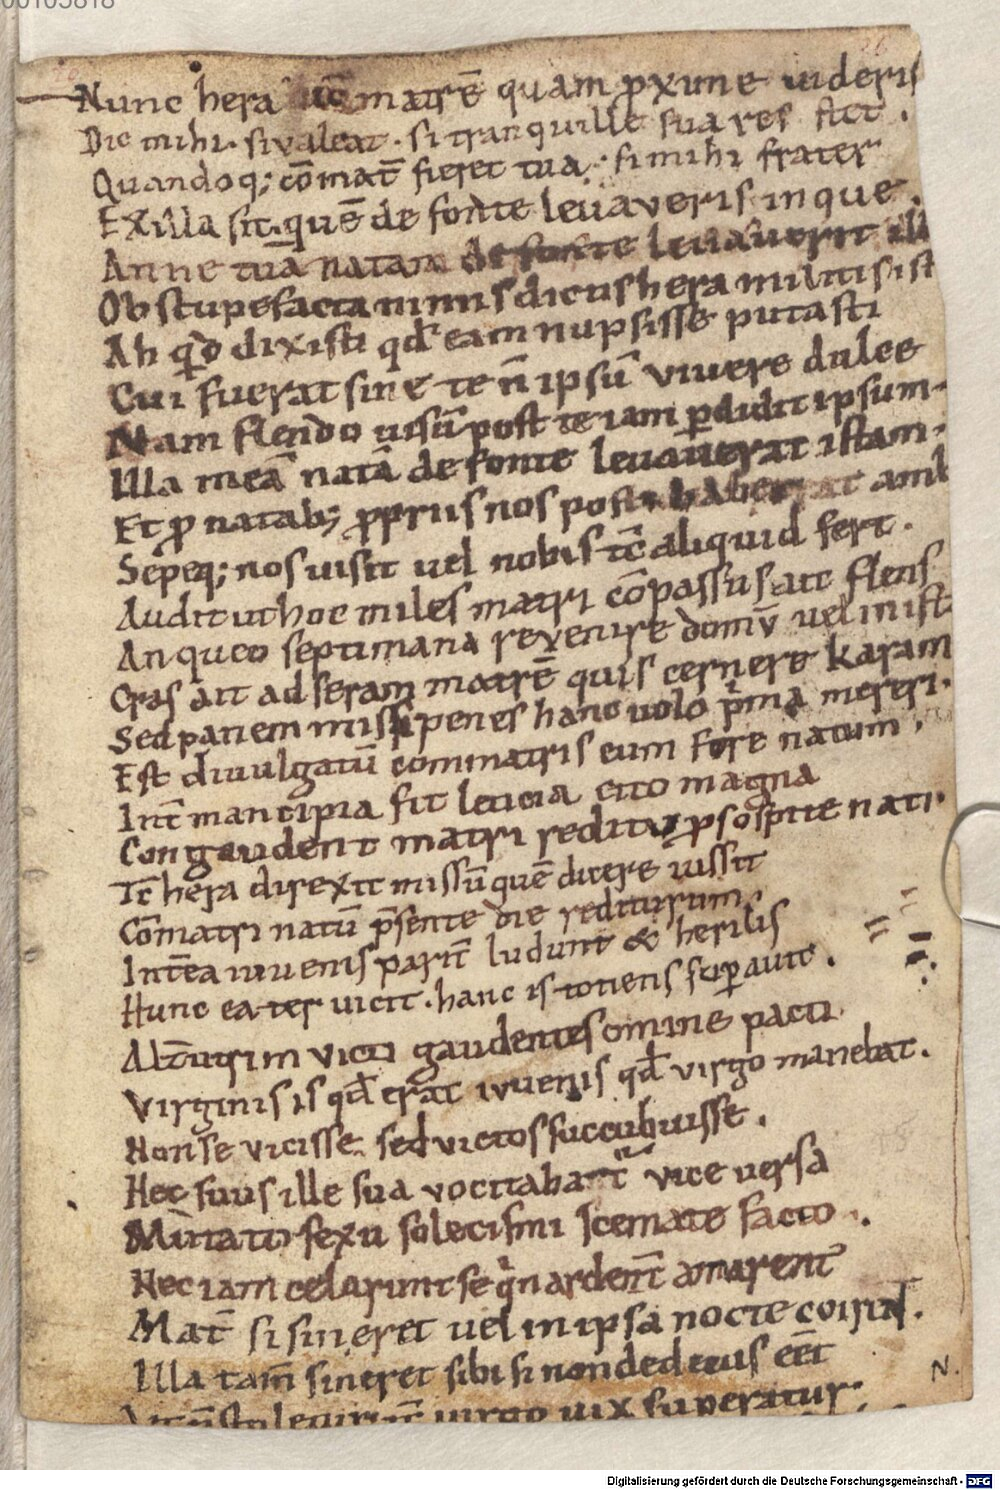 00105818
Nunc hera matrē quam proxime uideris
Dic mihi. si valeat. si tranquille sua res stet.
Quandoq; cōmat̄ fieret tua. si mihi frater
Ex illa sit. quē de fonte levaveris in que.
Anne tuā natam de fonte levaverit illa
Obstupefacta nimis dictis hera militis ist
Ah quid dixisti qd̄ eam nupsisse putasti
Cui fuerat sine te n̄ ipsū vivere dulce
Nam flendo uisū post te iam perdidit ipsum.
Illa meā natā de fonte levaverat istam.
Et pro natab; propriis nos post habet amb
Sepeq; nos uisit uel nobis tc̄ aliquid fert.
Audit ut hoc miles matri cōpassus ait flens
An queo septimana revenire domū vel in ist
Cras ait ad seram matrē quis cernere karam
Sed panem missi penes hanc uolo prima mereri.
Est divulgatū commatris eum fore natum.
Int̄ mancipia fit leticia cito magna
Congaudent matri reditu pro sospite nati.
Tc̄ hera direxit missū quē dicere iussit
Cōmatri natū p̄sente die rediturum.
Intēa iuvenis parit̄ ludunt & herilis
Hunc ea ter uicit. hanc is totiens superauit.
Alt̄utrim victi gaudentes omine pacti
Virginis is qd̄ erat iuvenis qd̄ virgo manebat.
Non se vicisse sed victos succubuisse.
Hec suus ille sua vocitabatur vice versa
Mutato sexu solecismi scemate facto.
Nec iam celarunt se quin ardent̄ amarent
Mat̄ si sineret uel in ipsa nocte coirent.
Illa tam̄ sineret sibi si non dedecus eēt
virgo uix superatur
N.
Digitalisierung gefördert durch die Deutsche Forschungsgemeinschaft - DFG